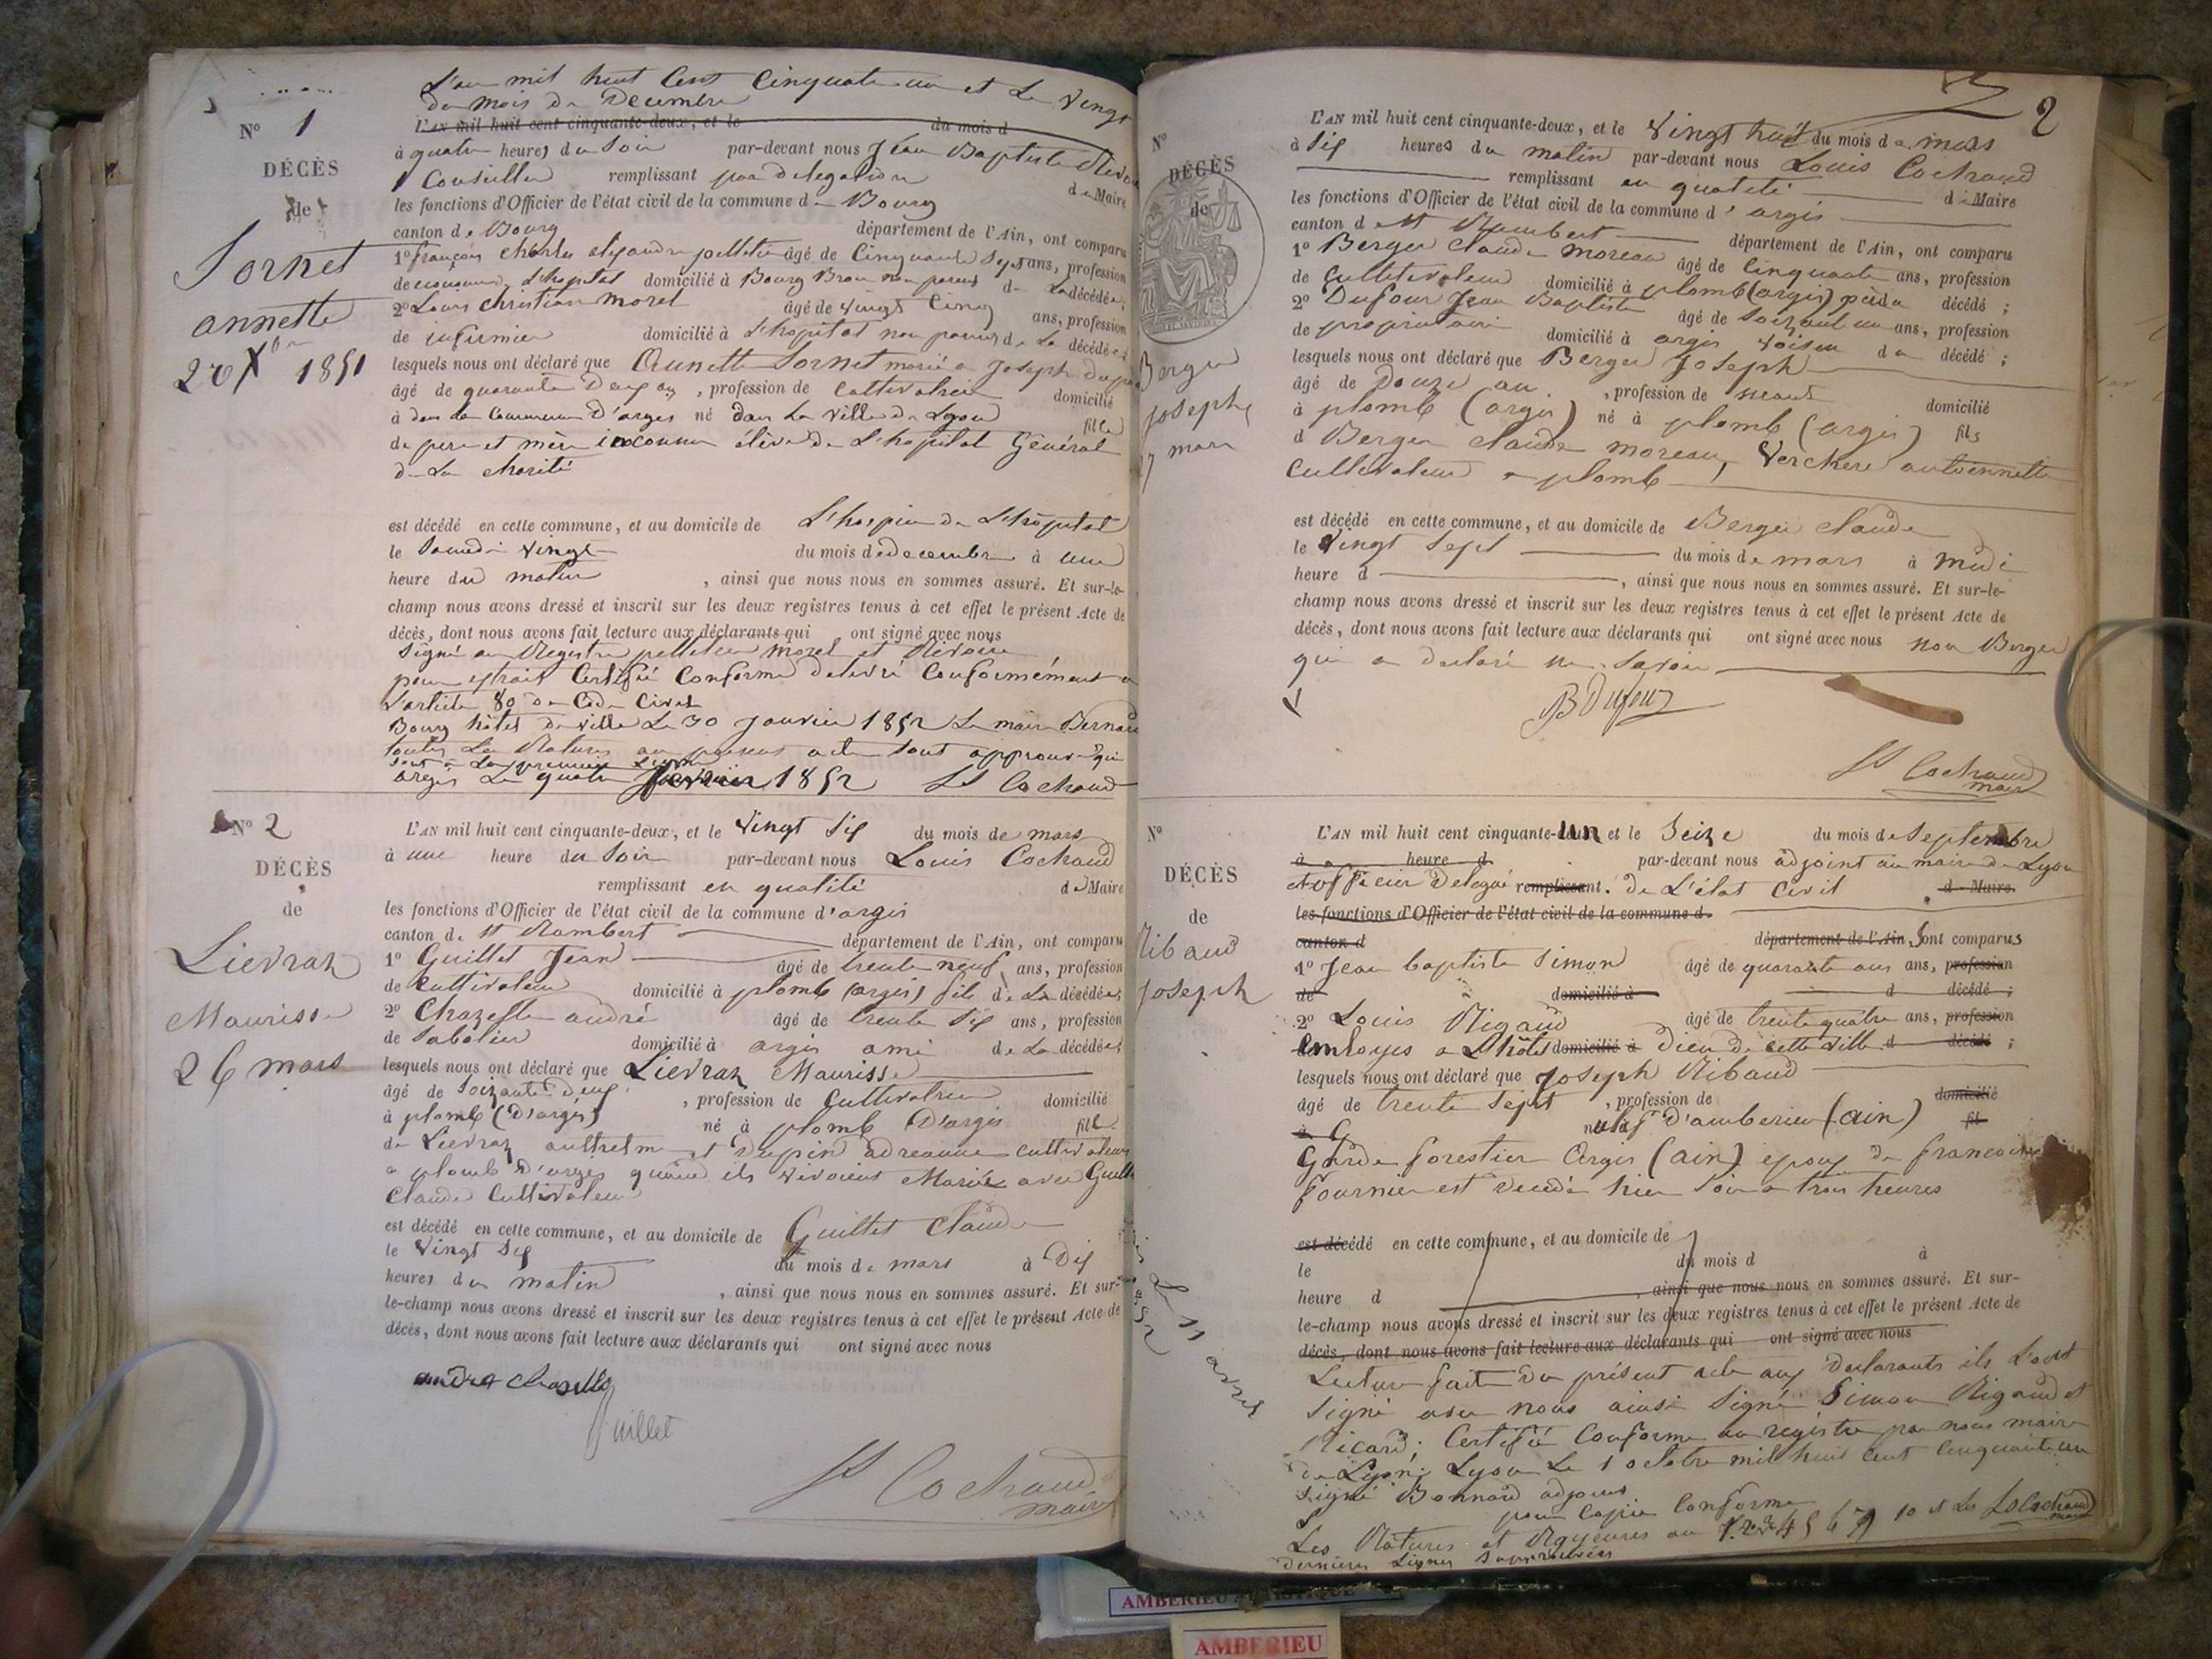 N° 1
DÉCÈS
de
Sornet
annette
20 Xbre 1851
L'an mil huit cent cinquante un et le vingt
du mois de Decembre
L'AN mil huit cent cinquante-deux, et le du mois d
à quatre heures du Soir par-devant nous Jean Baptiste
Conseiller remplissant par délégation de Maire
les fonctions d'Officier de l'état civil de la commune de Bourg
canton de Bourg département de l'Ain, ont comparu
1° françois charles alexandre pelletier âgé de Cinquante Sept ans, profession
de économe L'hopital domicilié à Bourg non parent de La décédée;
2° Louis Christian Morel âgé de vingt Cinq ans, profession
de infirmier domicilié à L'hopital non parent de La décédée;
lesquels nous ont déclaré que Annette Sornet mariée a Joseph
âgé de quarante Deux ans, profession de Cultivatrice domicilié
à dans la Commune D'arges né dans La Ville de Lyon fille
de pere et mère inconnu élève de L'hopital Général
de La charité
est décédé en cette commune, et au domicile de L'hospice de L'hôpital
le Samedi vingt du mois de decembre à une
heure du matin , ainsi que nous nous en sommes assuré. Et sur-le-
champ nous avons dressé et inscrit sur les deux registres tenus à cet effet le présent Acte de
décès, dont nous avons fait lecture aux déclarants qui ont signé avec nous
Signé au Registre pelletier Morel et
pour extrait Certifié Conforme délivré Conformément a
L'article 80 du Code Civil
Bourg hôtel de ville Le 30 Janvier 1852 Le maire Bernard
toutes Les Ratures au présent acte sont approuvé qui
sont a La première Ligne
argis Le quatre fevrier 1852 Ls Cochaud
N° 2
DÉCÈS
de
Lievraz
Maurisse
26 mars
L'AN mil huit cent cinquante-deux, et le vingt Six du mois de mars
à une heure du Soir par-devant nous Louis Cochaud
remplissant en qualité de Maire
les fonctions d'Officier de l'état civil de la commune d'argis
canton de St Rambert département de l'Ain, ont comparu
1° Guillet Jean âgé de trente neuf ans, profession
de Cultivateur domicilié à plomb (argis) fils de La décédée;
2° Chazelle andré âgé de trente Six ans, profession
de Sabotier domicilié à argis ami de La décédée;
lesquels nous ont déclaré que Lievraz Maurisse
âgé de Soizante deux , profession de Cultivatrice domicilié
à plomb (D'argis) né à plomb D'argis fille
de Lievraz anthelme et Dupin adreanne cultivateurs
a plomb D'arges quand ils vivoient Mariée avec Guillet
Claude Cultivateur
est décédé en cette commune, et au domicile de Guillet Claude
le Vingt Six du mois de mars à Dix
heures du matin , ainsi que nous nous en sommes assuré. Et sur-
le-champ nous avons dressé et inscrit sur les deux registres tenus à cet effet le présent Acte de
décès, dont nous avons fait lecture aux déclarants qui ont signé avec nous
andré chazelle
Guillet
Ls Cochaud
maire
2
N°
DÉCÈS
de
Berger
Joseph
mars
L'AN mil huit cent cinquante-deux, et le Vingt huit du mois de mars
à Six heures du matin par-devant nous Louis Cochaud
remplissant en qualité de Maire
les fonctions d'Officier de l'état civil de la commune d'argis
canton de St Rambert département de l'Ain, ont comparu
1° Berger Claude Moreau âgé de Cinquante ans, profession
de Cultivateur domicilié à plomb (argis) père du décédé;
2° Dufour Jean Baptiste âgé de Soizante un ans, profession
de propriétaire domicilié à argis voisin du décédé;
lesquels nous ont déclaré que Berger Joseph
âgé de Douze an , profession de neant domicilié
à plomb (argis) né à plomb (argis) fils
d Berger Claude moreau, Verchere antoinnette
Cultivateur a plomb
est décédé en cette commune, et au domicile de Berger Claude
le Vingt Sept du mois de mars à Midi
heure d , ainsi que nous nous en sommes assuré. Et sur-le-
champ nous avons dressé et inscrit sur les deux registres tenus à cet effet le présent Acte de
décès, dont nous avons fait lecture aux déclarants qui ont signé avec nous non Berger
qui a déclaré ne Savoir
B Dufour
Ls Cochaud
maire
N°
DÉCÈS
de
Ribaud
Joseph
Le 11 avril
L'AN mil huit cent cinquante-un et le Seize du mois de Septembre
à heure d par-devant nous adjoint au maire de Lyon
et officier Delegué remplissant de L'état Civil d Maire
les fonctions d'Officier de l'état civil de la commune d
canton d département de l'Ain, Sont comparus
1° Jean baptiste Simon âgé de quarante ans ans, profession
de domicilié à d décédé;
2° Louis Rigaud âgé de trente quatre ans, profession
Employes a L'hôtel domicilié à Dieu de cette ville d décédé;
lesquels nous ont déclaré que Joseph Ribaud
âgé de trente Sept , profession de domicilié
à natif D'amberieu (ain) fil
Garde forestier Argis (ain) epoux de francoise
fournier est décédé hier Soir a trois heures
est décédé en cette commune, et au domicile de
le du mois d à
heure d , ainsi que nous nous en sommes assuré. Et sur-
le-champ nous avons dressé et inscrit sur les deux registres tenus à cet effet le présent Acte de
décès, dont nous avons fait lecture aux déclarants qui ont signé avec nous
Lecture faite du présent acte aux declarants ils L'ont
Signé avec nous ainsi Signé Simon Rigaud et
Ricard; Certifié Conforme au registre par nous maire
de Lyon; Lyon Le 1 octobre mil huit cent Cinquante un
Signé Bonnard adjoint
pour Copie Conforme
Les Ratures et Rayeures au 1. 2. 3. 4 5 6 7 10 et Les Ls Cochaud maire
dernieres Lignes Sapprouvées
AMBERIEU
AMBERIEU